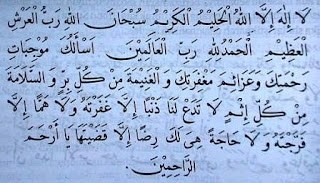 لَا إِلٰهَ إِلَّا اللهُ الْحَلِيْمُ الْكَرِيْمُ سُبْحَانَ اللهِ رَبِّ الْعَرْشِ
الْعَظِيْمِ الْحَمْدُ لِلّٰهِ رَبِّ الْعَالَمِيْنَ اَسْأَلُكَ مُوْجِبَاتِ
رَحْمَتِكَ وَعَزَائِمَ مَغْفِرَتِكَ وَ الْغَنِيْمَةَ مِنْ كُلِّ بِرٍّ وَ السَّلَامَةَ
مِنْ كُلِّ اِثْمٍ لَا تَدَعْ لَنَا ذَنْبًا اِلَّا غَفَرْتَهُ وَ لَا هَمًّا اِلَّا
فَرَّجْتَهُ وَ لَا حَاجَةً هِىَ لَكَ رِضًا اِلَّا قَضَيْتَهَا يَا أَرْحَمَ
الرَّاحِمِيْنَ .